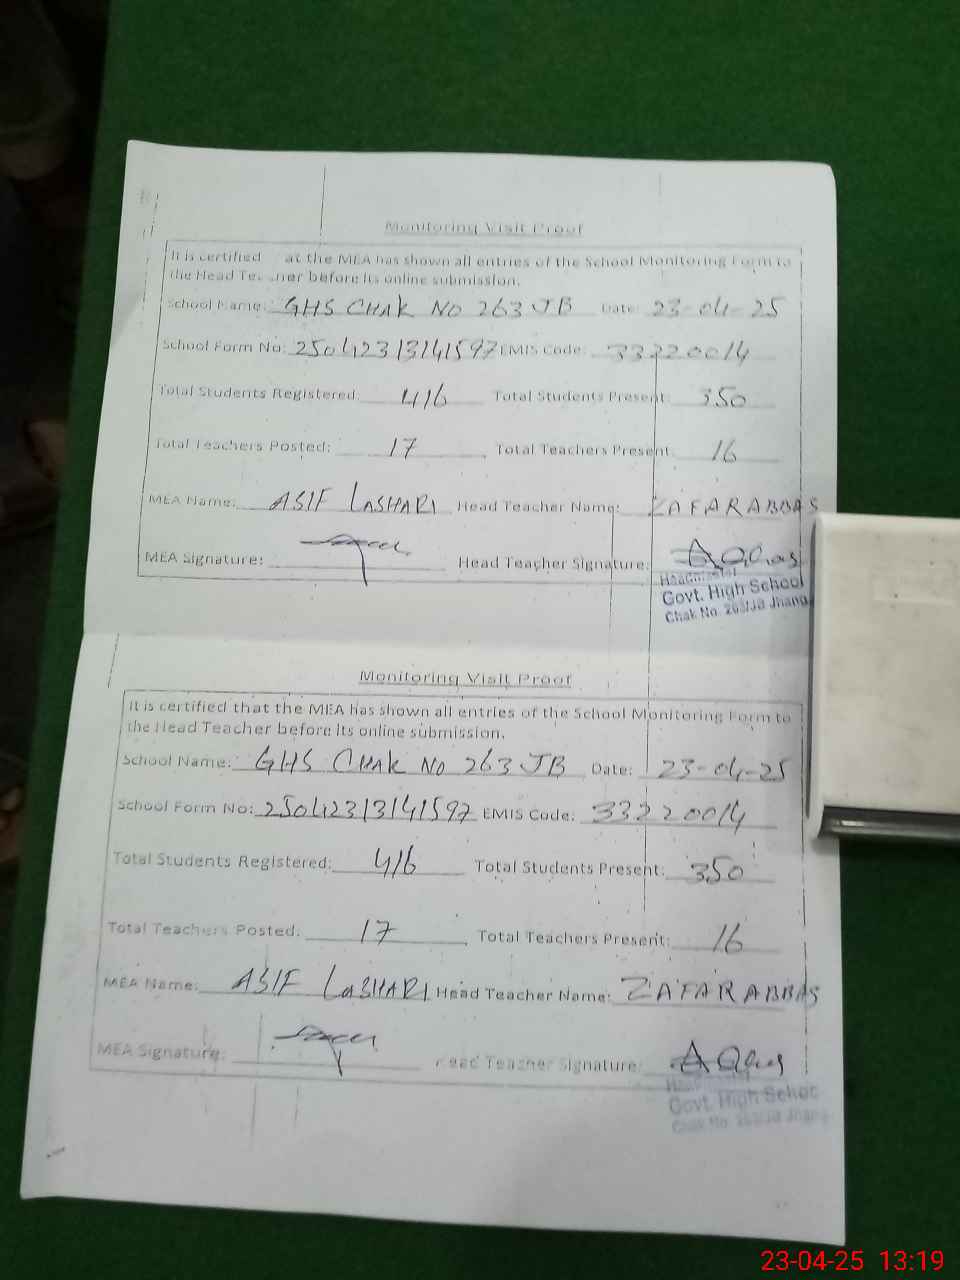 Monitoring Visit Proof
It is certified at the MEA has shown all entries of the School Monitoring Form to
the Head Te. .ner before its online submission.
School Name: GHS CHAK NO 263 JB Date: 23-04-25
School Form No: 25042313141597 EMIS Code: 33220014
Total Students Registered: 416 Total Students Present: 350
Total Teachers Posted: 17 Total Teachers Present: 16
MEA Name: ASIF LASHARI Head Teacher Name: ZAFAR ABBAS
MEA Signature: Head Teacher Signature:
Headmaster
Govt. High School
Chak No. 263/JB Jhang
Monitoring Visit Proof
It is certified that the MEA has shown all entries of the School Monitoring Form to
the Head Teacher before its online submission.
School Name: GHS CHAK NO 263 JB Date: 23-04-25
School Form No: 25042313141597 EMIS Code: 33220014
Total Students Registered: 416 Total Students Present: 350
Total Teachers Posted: 17 Total Teachers Present: 16
MEA Name: ASIF LASHARI Head Teacher Name: ZAFAR ABBAS
MEA Signature: Head Teacher Signature:
Headmaster
Govt. High School
Chak No. 263/JB Jhang
23-04-25 13:19